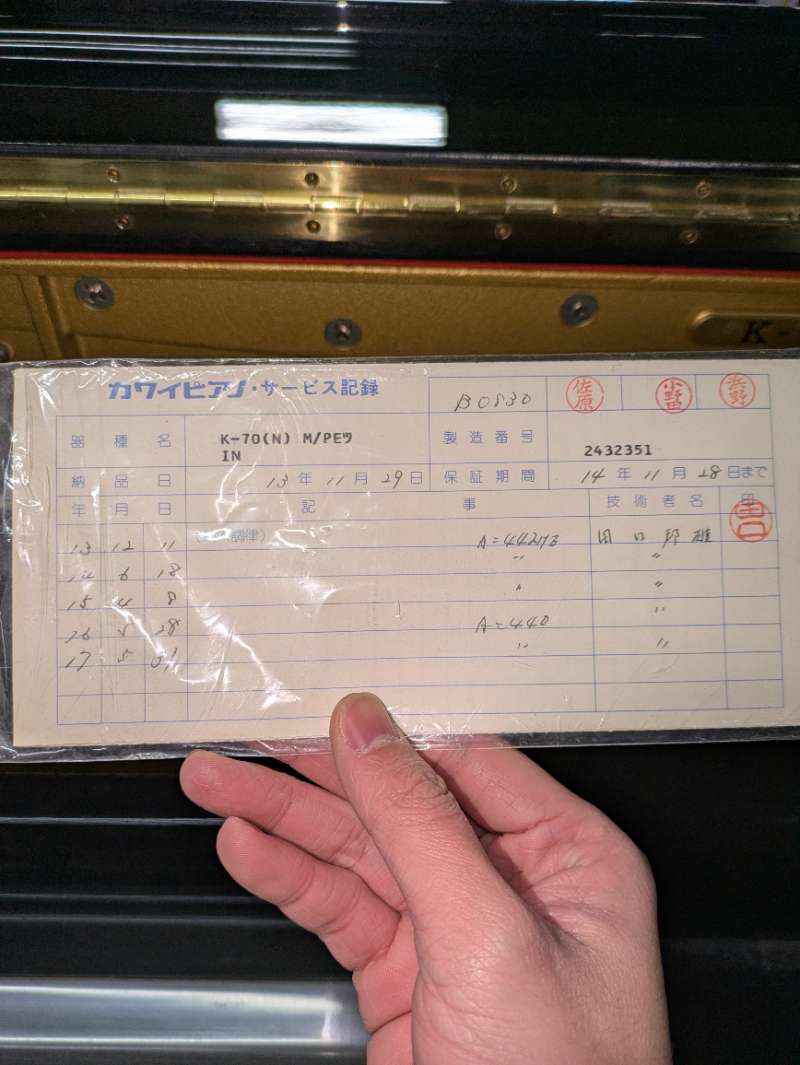 カワイピアノ・サービス記録
B0830 佐原 小野田 浜野
器種名 K-70(N) M/PEツ
IN
製造番号 2432351
納品日 13年11月29日 保証期間 14年11月28日まで
年月日 記事 技術者名 印
13 12 11 調律) A=442HZ 田口邦雄 田口
14 6 18 〃 〃
15 4 8 〃 〃
16 5 28 A=440 〃
17 5 〃 〃
K-